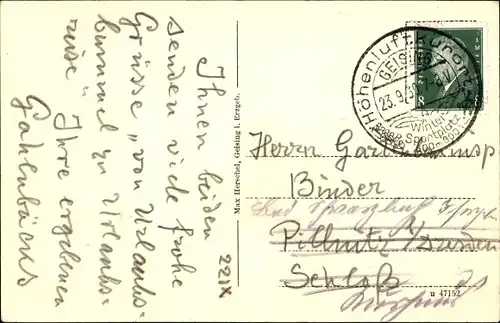 Ihnen beiden
senden viele frohe
Grüsse „von Urlaubs-
bummel zu Urlaubs-
reise"
Ihre ergebenen
Gahlenbäcks
221X
Max Herschel, Geising i. Erzgeb.
Höhenluft-Kurort
GEISING
23.9.3
Winter-
Sportplatz
600-800
Herrn Garteninsp
Binder
Bad
Pillnitz/Dresden
Schloß
u 47152